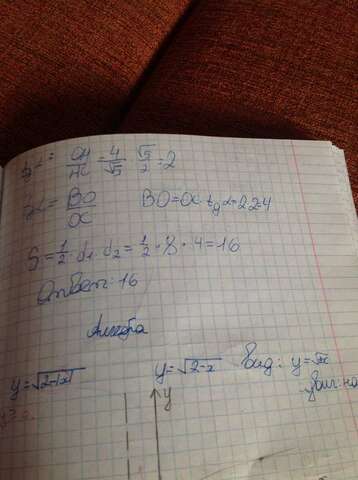 tg α = OH/HC = 4/√5 · √5/2 = 2
tg α = BO/OC BO = OC · tg α = 2·2=4
S = 1/2 · d₁ d₂ = 1/2 · 8 · 4 = 16
Ответ: 16
Алгебра
y = √2-|x| y = √2-x Вид: y = √x
y